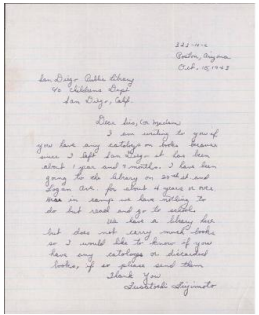 322-14-C
Poston, Arizona
Oct. 15, 1942
San Diego Public Library
℅ Childrens Dept
San Diego, Calif.
Dear Sir, or Madam
I am writing to you if
you have any catalogs on books because
since I left San Diego it has been
about 1 year and 7 months. I have been
going to the library on 28th st and
Logan Ave. for about 4 years or more
in camp we have nothing to
do but read and go to school.
We have a library here
but does not carry much books
so I would like to know if you
have any catalogs or discard
books, if so please send them
Thank You